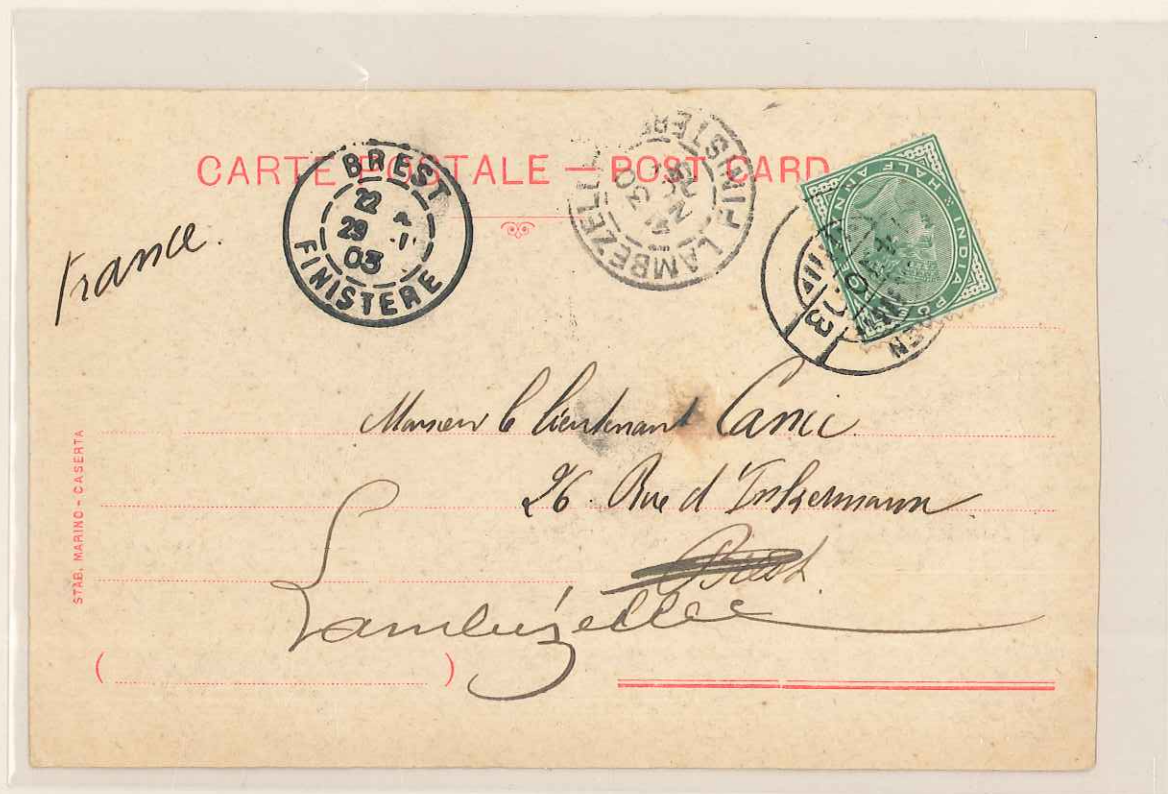 CARTE POSTALE — POST CARD
BREST
22
29 -1
03
FINISTERE
LAMBEZELLEC
FINISTERE
INDIA POSTAGE
HALF ANNA
ADEN
France.
Monsieur le lieutenant
26 Rue d'Inkermann
Brest
Lambézellec
STAB. MARINO - CASERTA
( )